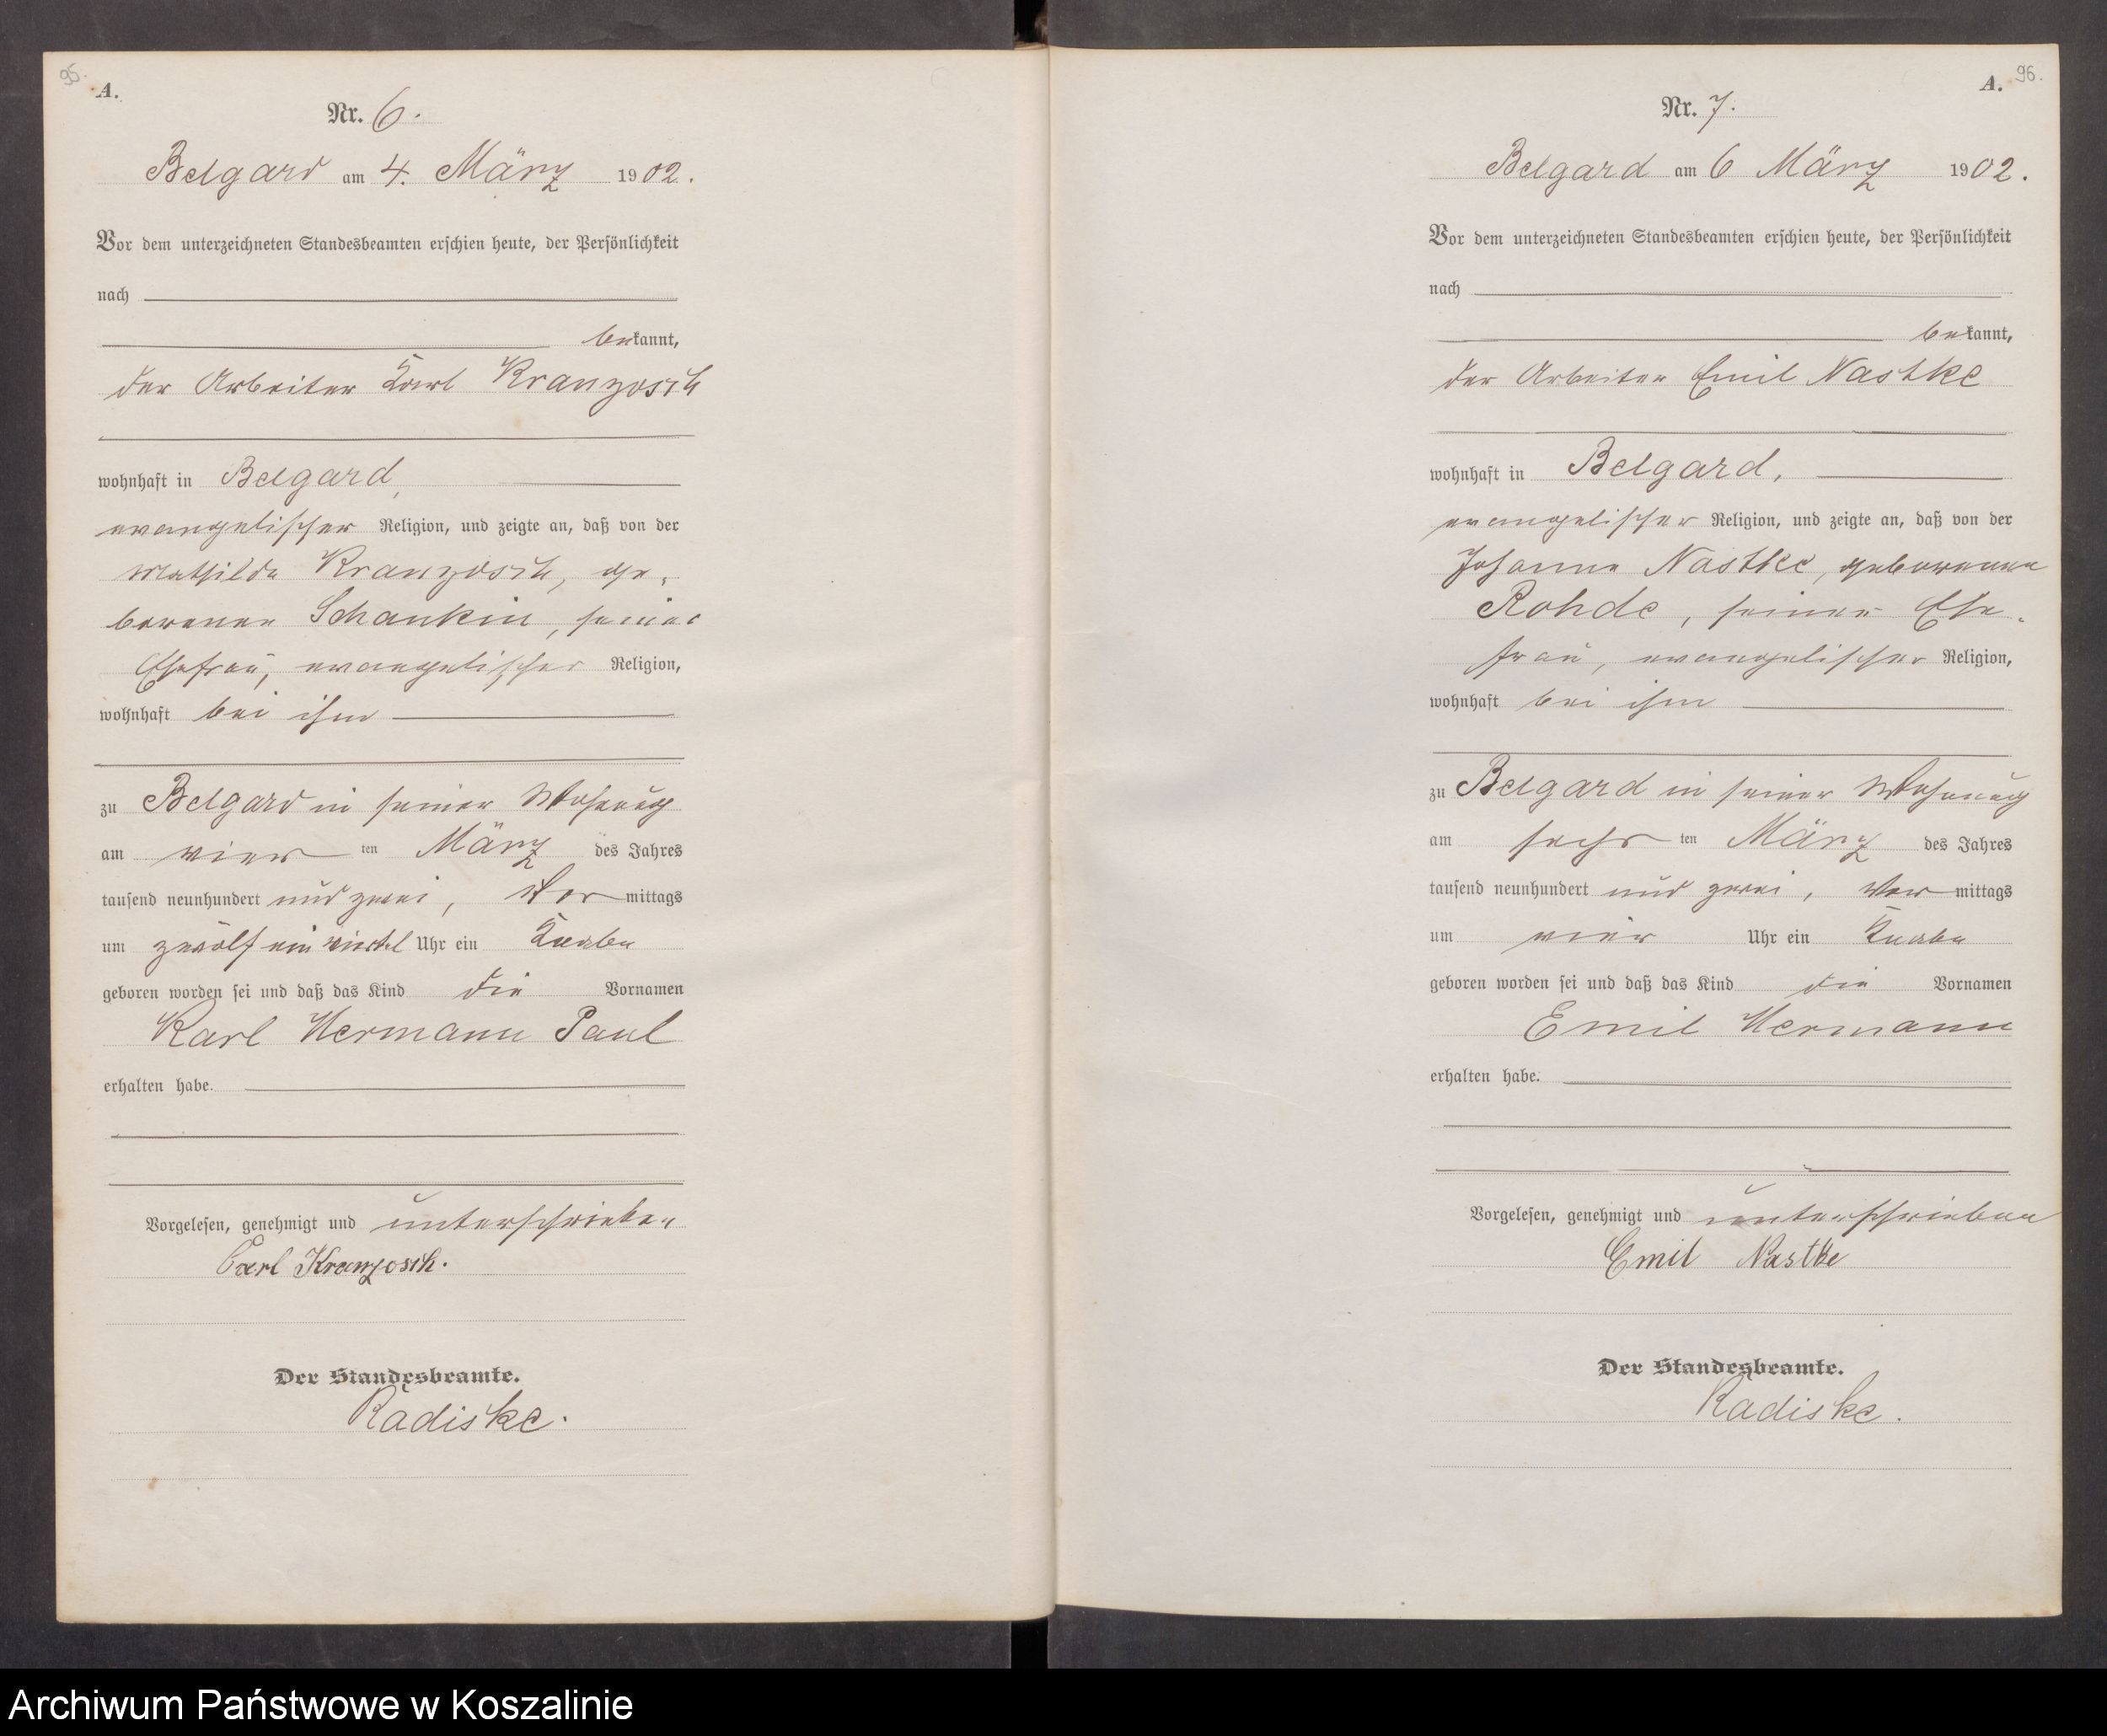 95.
A.
Nr. 6.
Belgard am 4. März 1902.
Vor dem unterzeichneten Standesbeamten erschien heute, der Persönlichkeit
nach
bekannt,
der Arbeiter Karl Kranzosch
wohnhaft in Belgard,
evangelischer Religion, und zeigte an, daß von der
Mathilde Kranzosch, ge-
borenen Schankin, seiner
Ehefrau, evangelischer Religion,
wohnhaft bei ihm
zu Belgard in seiner Wohnung
am vier ten März des Jahres
tausend neunhundert und zwei, Vor mittags
um zwölf ein viertel Uhr ein Knabe
geboren worden sei und daß das Kind die Vornamen
Karl Hermann Paul
erhalten habe.
Vorgelesen, genehmigt und unterschrieben
Carl Kranzosch.
Der Standesbeamte.
Radiske.
A. 96.
Nr. 7.
Belgard am 6 März 1902.
Vor dem unterzeichneten Standesbeamten erschien heute, der Persönlichkeit
nach
bekannt,
der Arbeiter Emil Nastke
wohnhaft in Belgard,
evangelischer Religion, und zeigte an, daß von der
Johanne Nastke, geborenen
Rohde, seiner Ehe-
frau, evangelischer Religion,
wohnhaft bei ihm
zu Belgard in seiner Wohnung
am sechs ten März des Jahres
tausend neunhundert und zwei, Vor mittags
um vier Uhr ein Knabe
geboren worden sei und daß das Kind die Vornamen
Emil Hermann
erhalten habe.
Vorgelesen, genehmigt und unterschrieben
Emil Nastke
Der Standesbeamte.
Radiske.
Archiwum Państwowe w Koszalinie